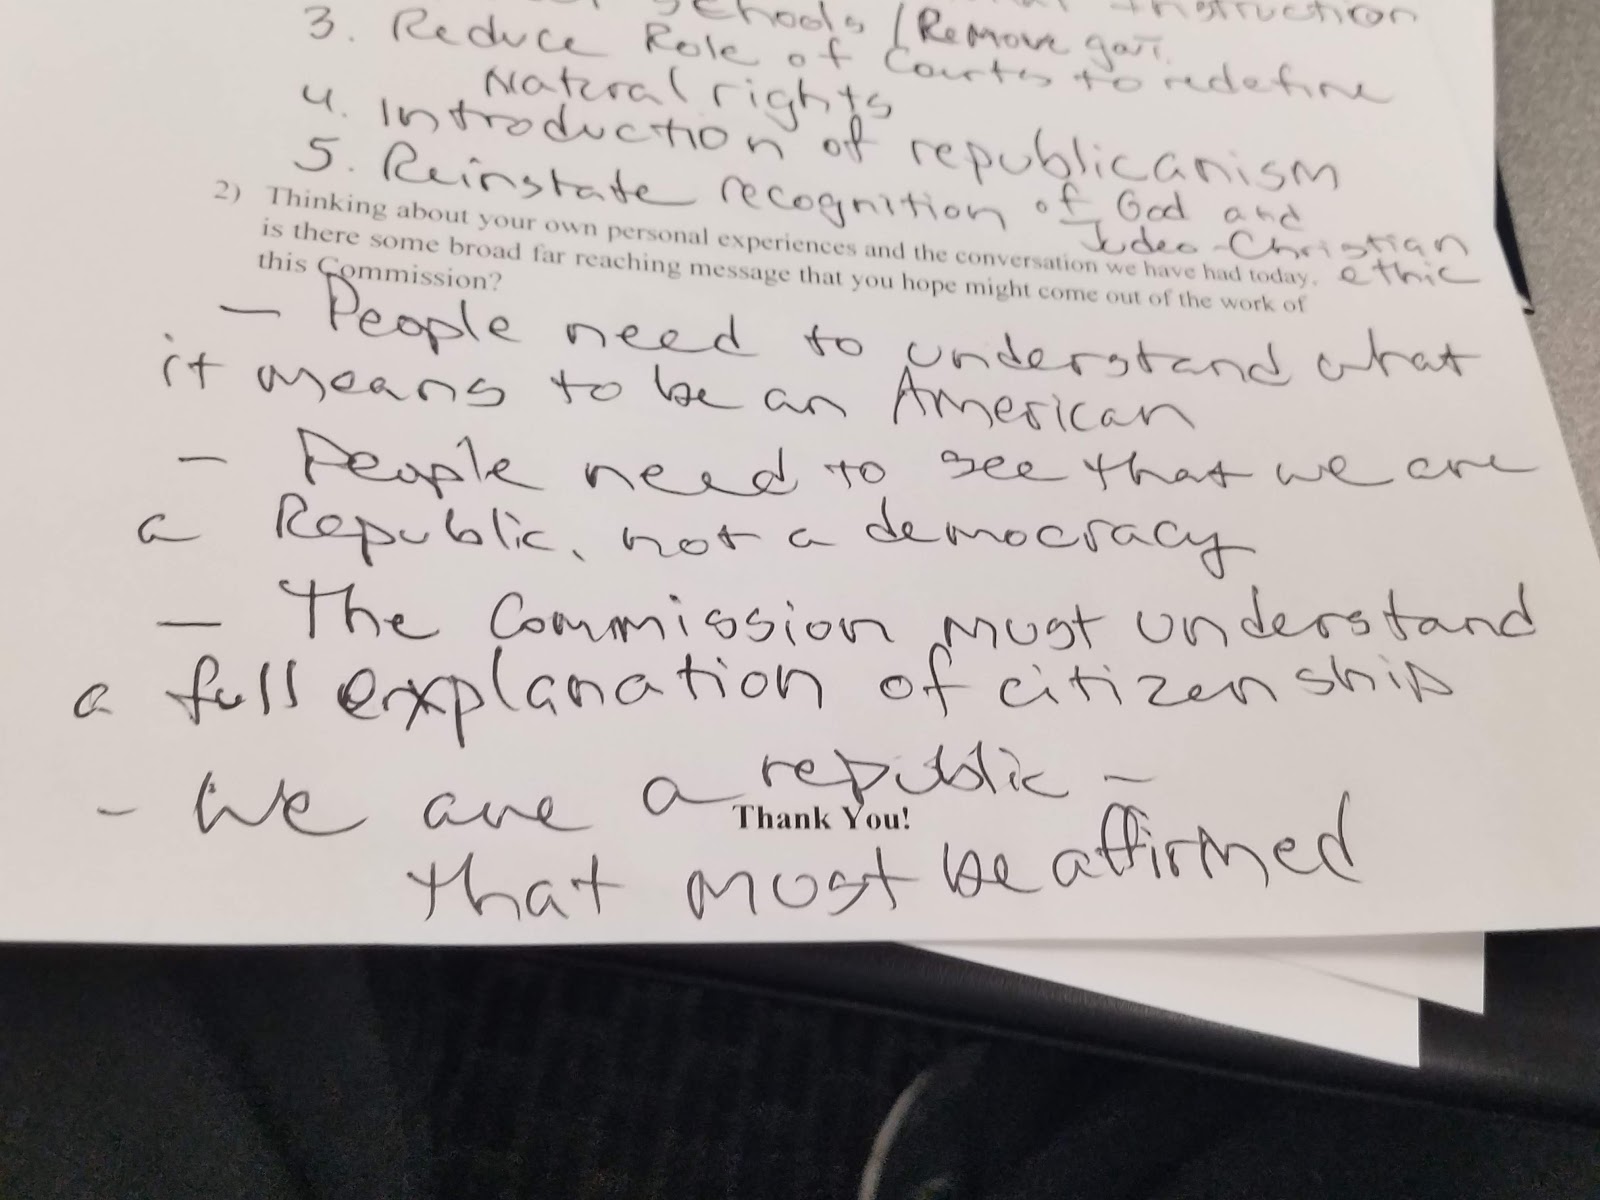 Schools / Remove gov't. Instruction
3. Reduce Role of Courts to redefine
Natural rights
4. Introduction of republicanism
5. Reinstate recognition of God and
Judeo-Christian
ethic
2) Thinking about your own personal experiences and the conversation we have had today,
is there some broad far reaching message that you hope might come out of the work of
this Commission?
— People need to understand what
it means to be an American
— People need to see that we are
a Republic, not a democracy
— The Commission must understand
a full explanation of citizenship
- We are a republic –
Thank You!
that must be affirmed